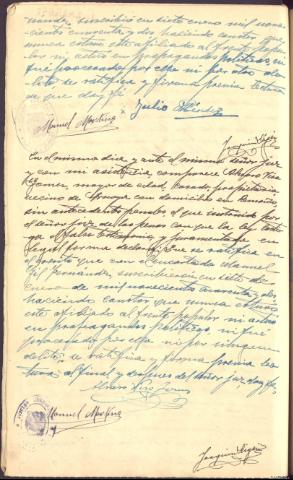 nuando, suscribió en siete enero mil nove-
cientos cuarenta y dos haciendo constar que
nunca estuvo este afiliado al frente popular
ni actuó en propagandas políticas, ni
fué procesado por ellas ni por otro de-
lito se ratifica y firma previa lectura
de que doy fé
Julio
Manuel Martinez
Joaquin
En el mismo dia y ante el mismo señor Juez
y con mi asistencia comparece Alvaro
Gomez, mayor de edad, casado, propietario
vecino de con domicilio en
sin antecedentes penales el que instruido por
el señor Juez de las penas con que la ley casti-
ga el falso testimonio y juramentado en
legal forma declara: Que se ratifica en
el escrito que con el encartado Manuel
Gil Fernández, suscribió en siete de
enero de mil novecientos cuarenta y dos
haciendo constar que nunca estuvo
este afiliado al frente popular ni actuó
en propagandas políticas ni fué
procesado por ellas ni por ningun
delito, se ratifica y firma previa lec-
tura, al final y despues del señor Juez doy fe.
Alvaro
Manuel Martinez
Joaquin